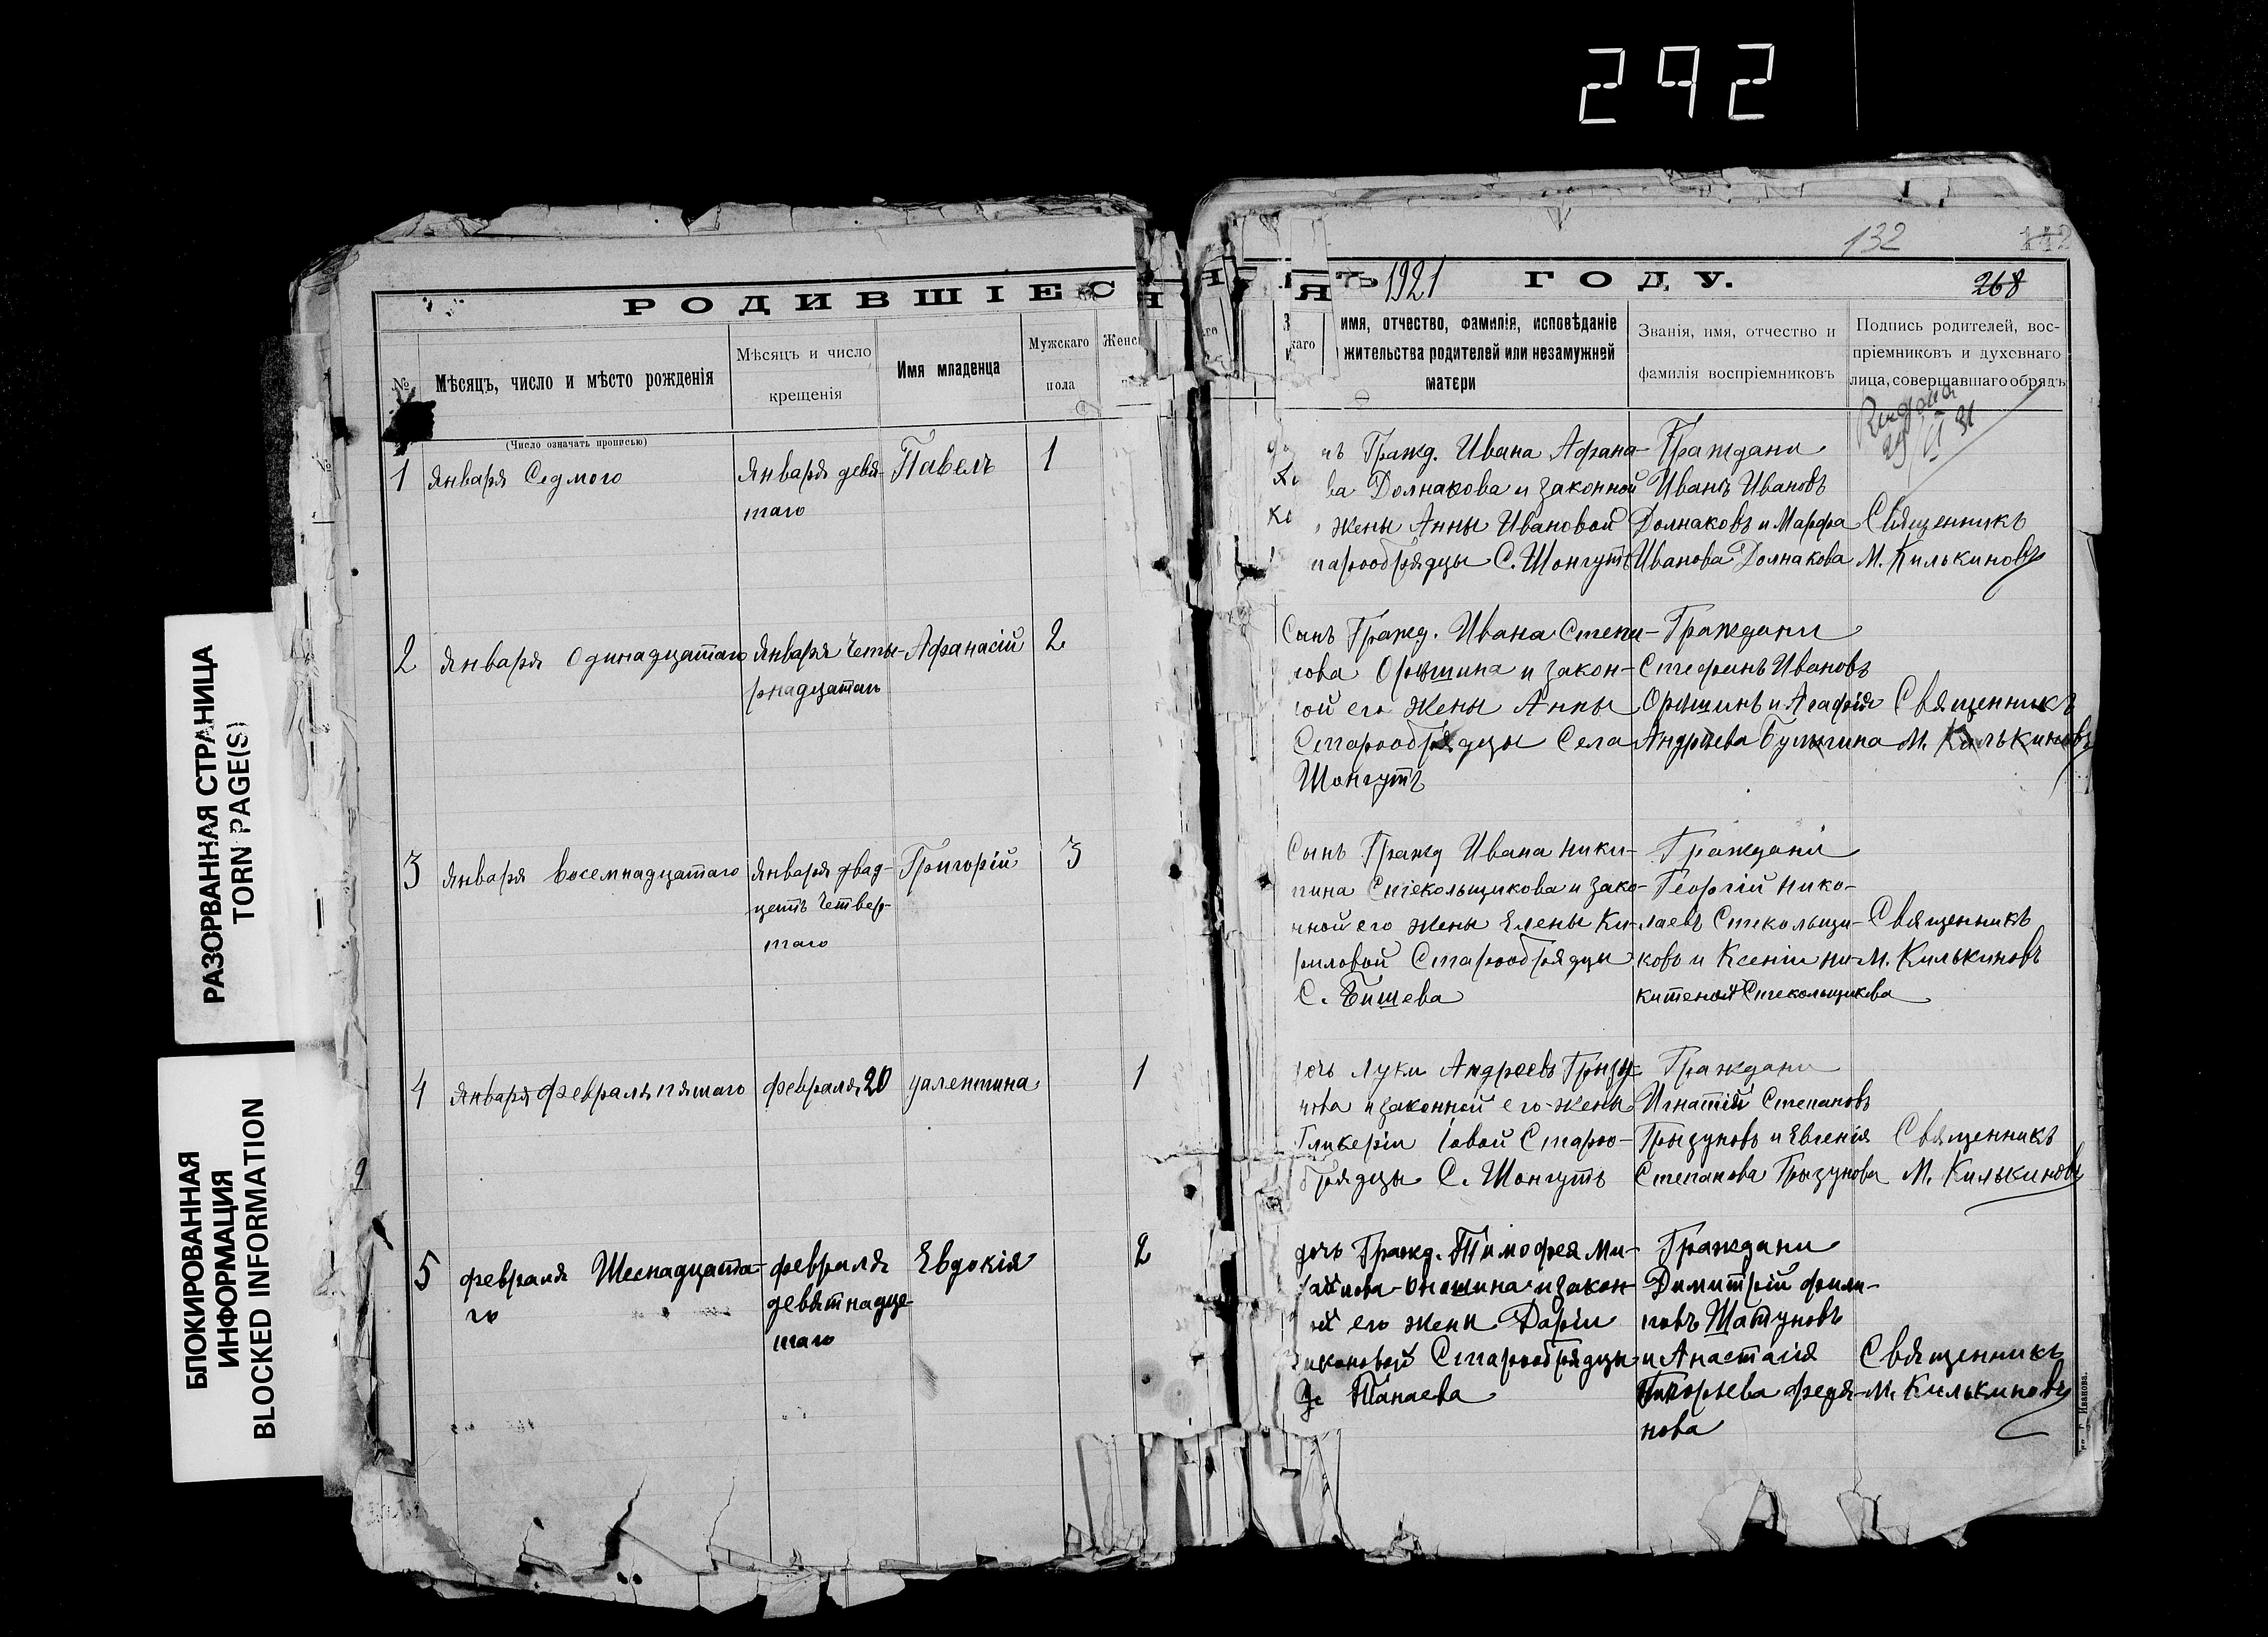 292
132
142
РОДИВШІЕС
Я
ТЪ 1921 ГОДУ.
268
№
Мѣсяцъ, число и мѣсто рожденія
Мѣсяцъ и число
крещенія
Имя младенца
Мужскаго
пола
Женс
имя, отчество, фамилія, исповѣданіе
жительства родителей или незамужней
матери
Званія, имя, отчество и
фамилія воспріемниковъ
Подпись родителей, вос-
пріемниковъ и духовнаго
лица, совершавшаго обрядъ
(Число означать прописью)
1 Января Седмого
Января девя-
таго
Павелъ
1
Гражд. Ивана Афана-
ва Долнакова и законной
жены Анны Ивановой
тарообрядцы С. Шонгутъ
Граждани
Иванъ Ивановъ
Долнаковъ и Марфа
Иванова Долнакова
Священникъ
М. Килькиновъ
2 Января Одинадцатаго
Января Четы-
рнадцатаго
Афанасій
2
Сынъ Гражд. Ивана Степа-
нова Оришина и закон-
ной его жены Анны
Старообрядцы Села
Шонгутъ
Граждани
Стефанъ Ивановъ
Оришинъ и Агафія
Андрѣева Булыгина
Священникъ
М. Килькиновъ
3 Января Восемнадцатаго
Января двад-
цеть Четвер-
таго
Григорій
3
Сынъ Гражд Ивана Ники-
тина Стекольщикова и зако-
нной его жены Елены Ки-
риловой Старообрядцы
С. Бишева
Граждани
Георгій Нико-
лаевъ Стекольщи-
ковъ и Ксенія Ни-
китеная Стекольщикова
Священникъ
М. Килькиновъ
4 Января Февраля пятаго
Февраля 20
Валентина
1
дочь Луки Андреевъ Грызу-
нова и законной его жены
Гликеріи Іовой Старо-
брядцы С. Шонгутъ
Граждани
Игнатій Степановъ
Грызуновъ и Евгенія
Степанова Грызунова
Священникъ
М. Килькиновъ
5 Февраля Шеснадцата-
го
Февраля
девятнадце-
таго
Евдокія
2
дочь Гражд. Тимофея Ми-
хайлова Онешина и закон-
ой его жены Даріи
Старообрядцы
Танаева
Граждани
Димитрій Фили-
повъ Шатуновъ
и Анастасія
Григорьева Федя-
нова
Священникъ
М. Килькиновъ
РАЗОРВАННАЯ СТРАНИЦА
TORN PAGE(S)
БЛОКИРОВАННАЯ
ИНФОРМАЦИЯ
BLOCKED INFORMATION